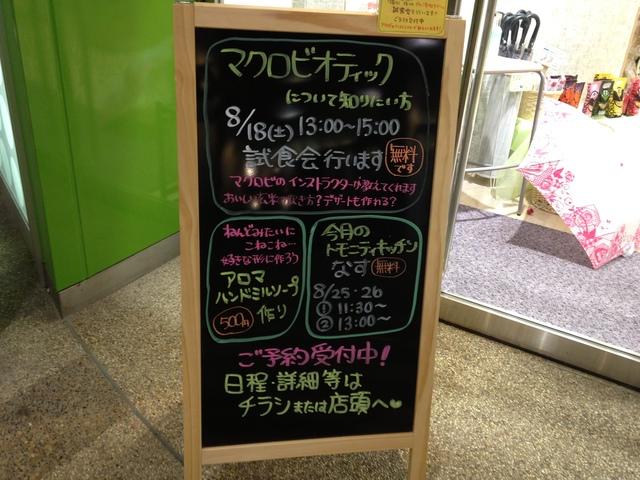 ご予約受付中
マクロビオティック
について知りたい方
8/18(土) 13:00〜15:00
試食会行います 無料です
マクロビのインストラクターが教えてくれます
おいしい玄米の炊き方?デザートも作れる?
ねんどみたいに
こねこね…
好きな形に作ろう
アロマ
ハンドミルソープ
500円 作り
今月の
トモニティキッチン
なす 無料
8/25・26
① 11:30〜
② 13:00〜
ご予約受付中!
日程・詳細等は
チラシまたは店頭へ♥